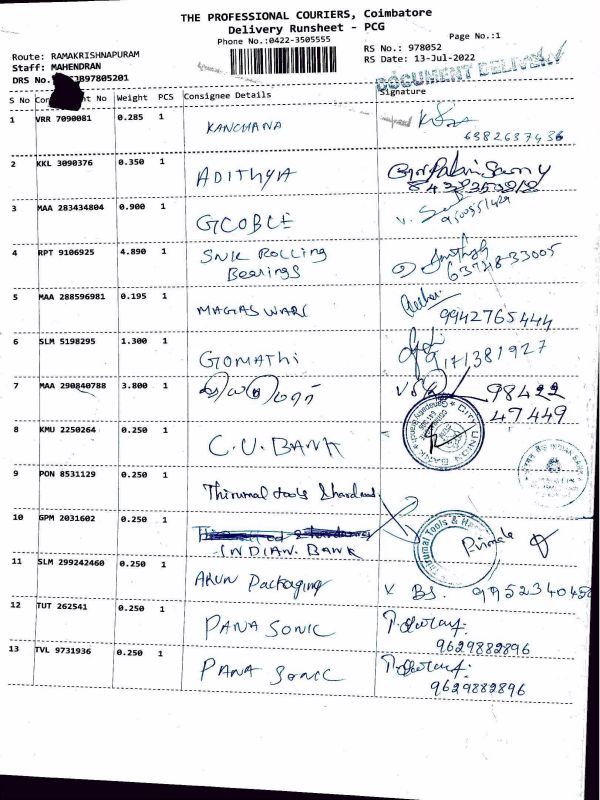 THE PROFESSIONAL COURIERS, Coimbatore
Delivery Runsheet - PCG
Phone No.:0422-3505555
Page No.:1
Route: RAMAKRISHNAPURAM
Staff: MAHENDRAN
RS No.: 978052
RS Date: 13-Jul-2022
DRS No. 897805201
DOCUMENT DELIVERY
S No Con nt No Weight PCS Consignee Details Signature
1 VRR 7090081 0.285 1 KANCHANA
6382637436
2 KKL 3090376 0.350 1 ADITHYA
3 MAA 283434804 0.900 1 GCOBLE
4 RPT 9106925 4.890 1 SNK ROLLING
Bearings
63748-33005
5 MAA 288596981 0.195 1 MAGASWARI
9942765444
6 SLM 5198295 1.300 1 GOMATHI
9171381927
7 MAA 290840788 3.800 1
98422
47449
8 KMU 2250264 0.250 1 C.U. BANK
CITY UNION BANK
9 PON 8531129 0.250 1 Thirumal tools & hardware
INDIAN BANK
10 GPM 2031602 0.250 1
INDIAN. BANK
Thirumal Tools & Ha
11 SLM 299242460 0.250 1 ARUN Packaging BS. 995234045
12 TUT 262541 0.250 1 PANA SONIC
9629882896
13 TVL 9731936 0.250 1 PANA SONIC
9629882896